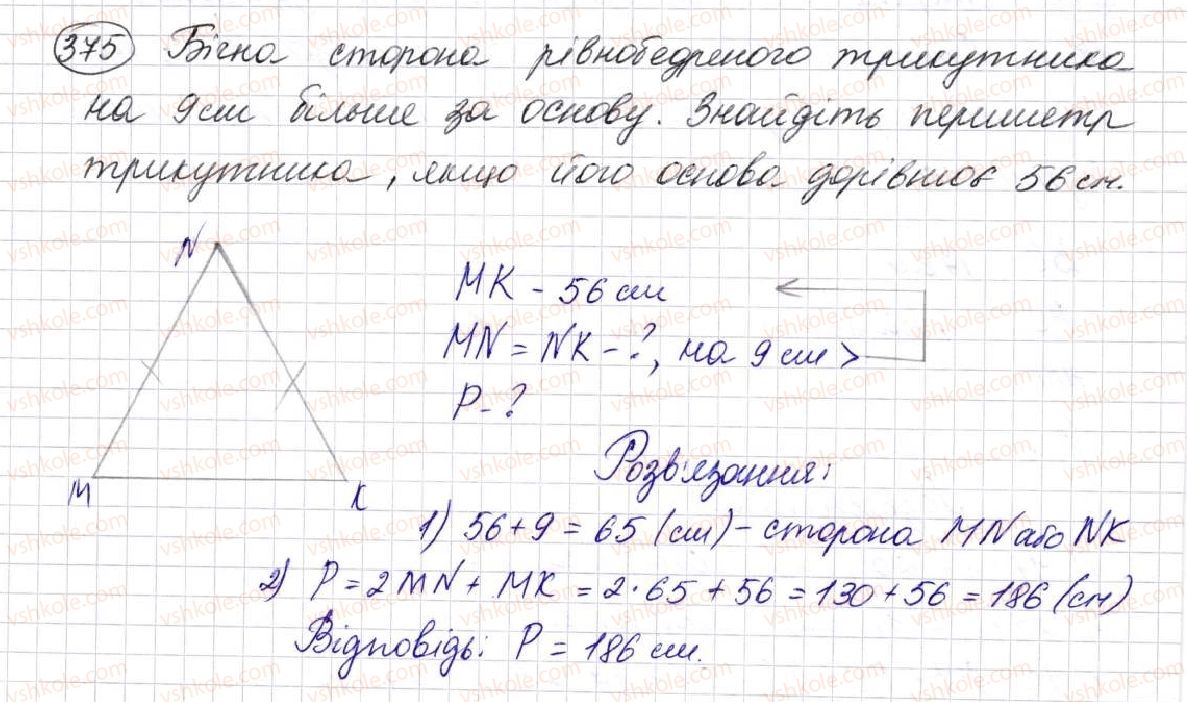 375 Бічна сторона рівнобедреного трикутника
на 9 см більше за основу. Знайдіть периметр
трикутника, якщо його основа дорівнює 56 см.
N
M
K
MK - 56 см
MN = NK - ?, на 9 см >
P - ?
Розв'язання:
1) 56 + 9 = 65 (см) - сторона MN або NK
2) P = 2MN + MK = 2·65 + 56 = 130 + 56 = 186 (см)
Відповідь: P = 186 см.
vshkole.com